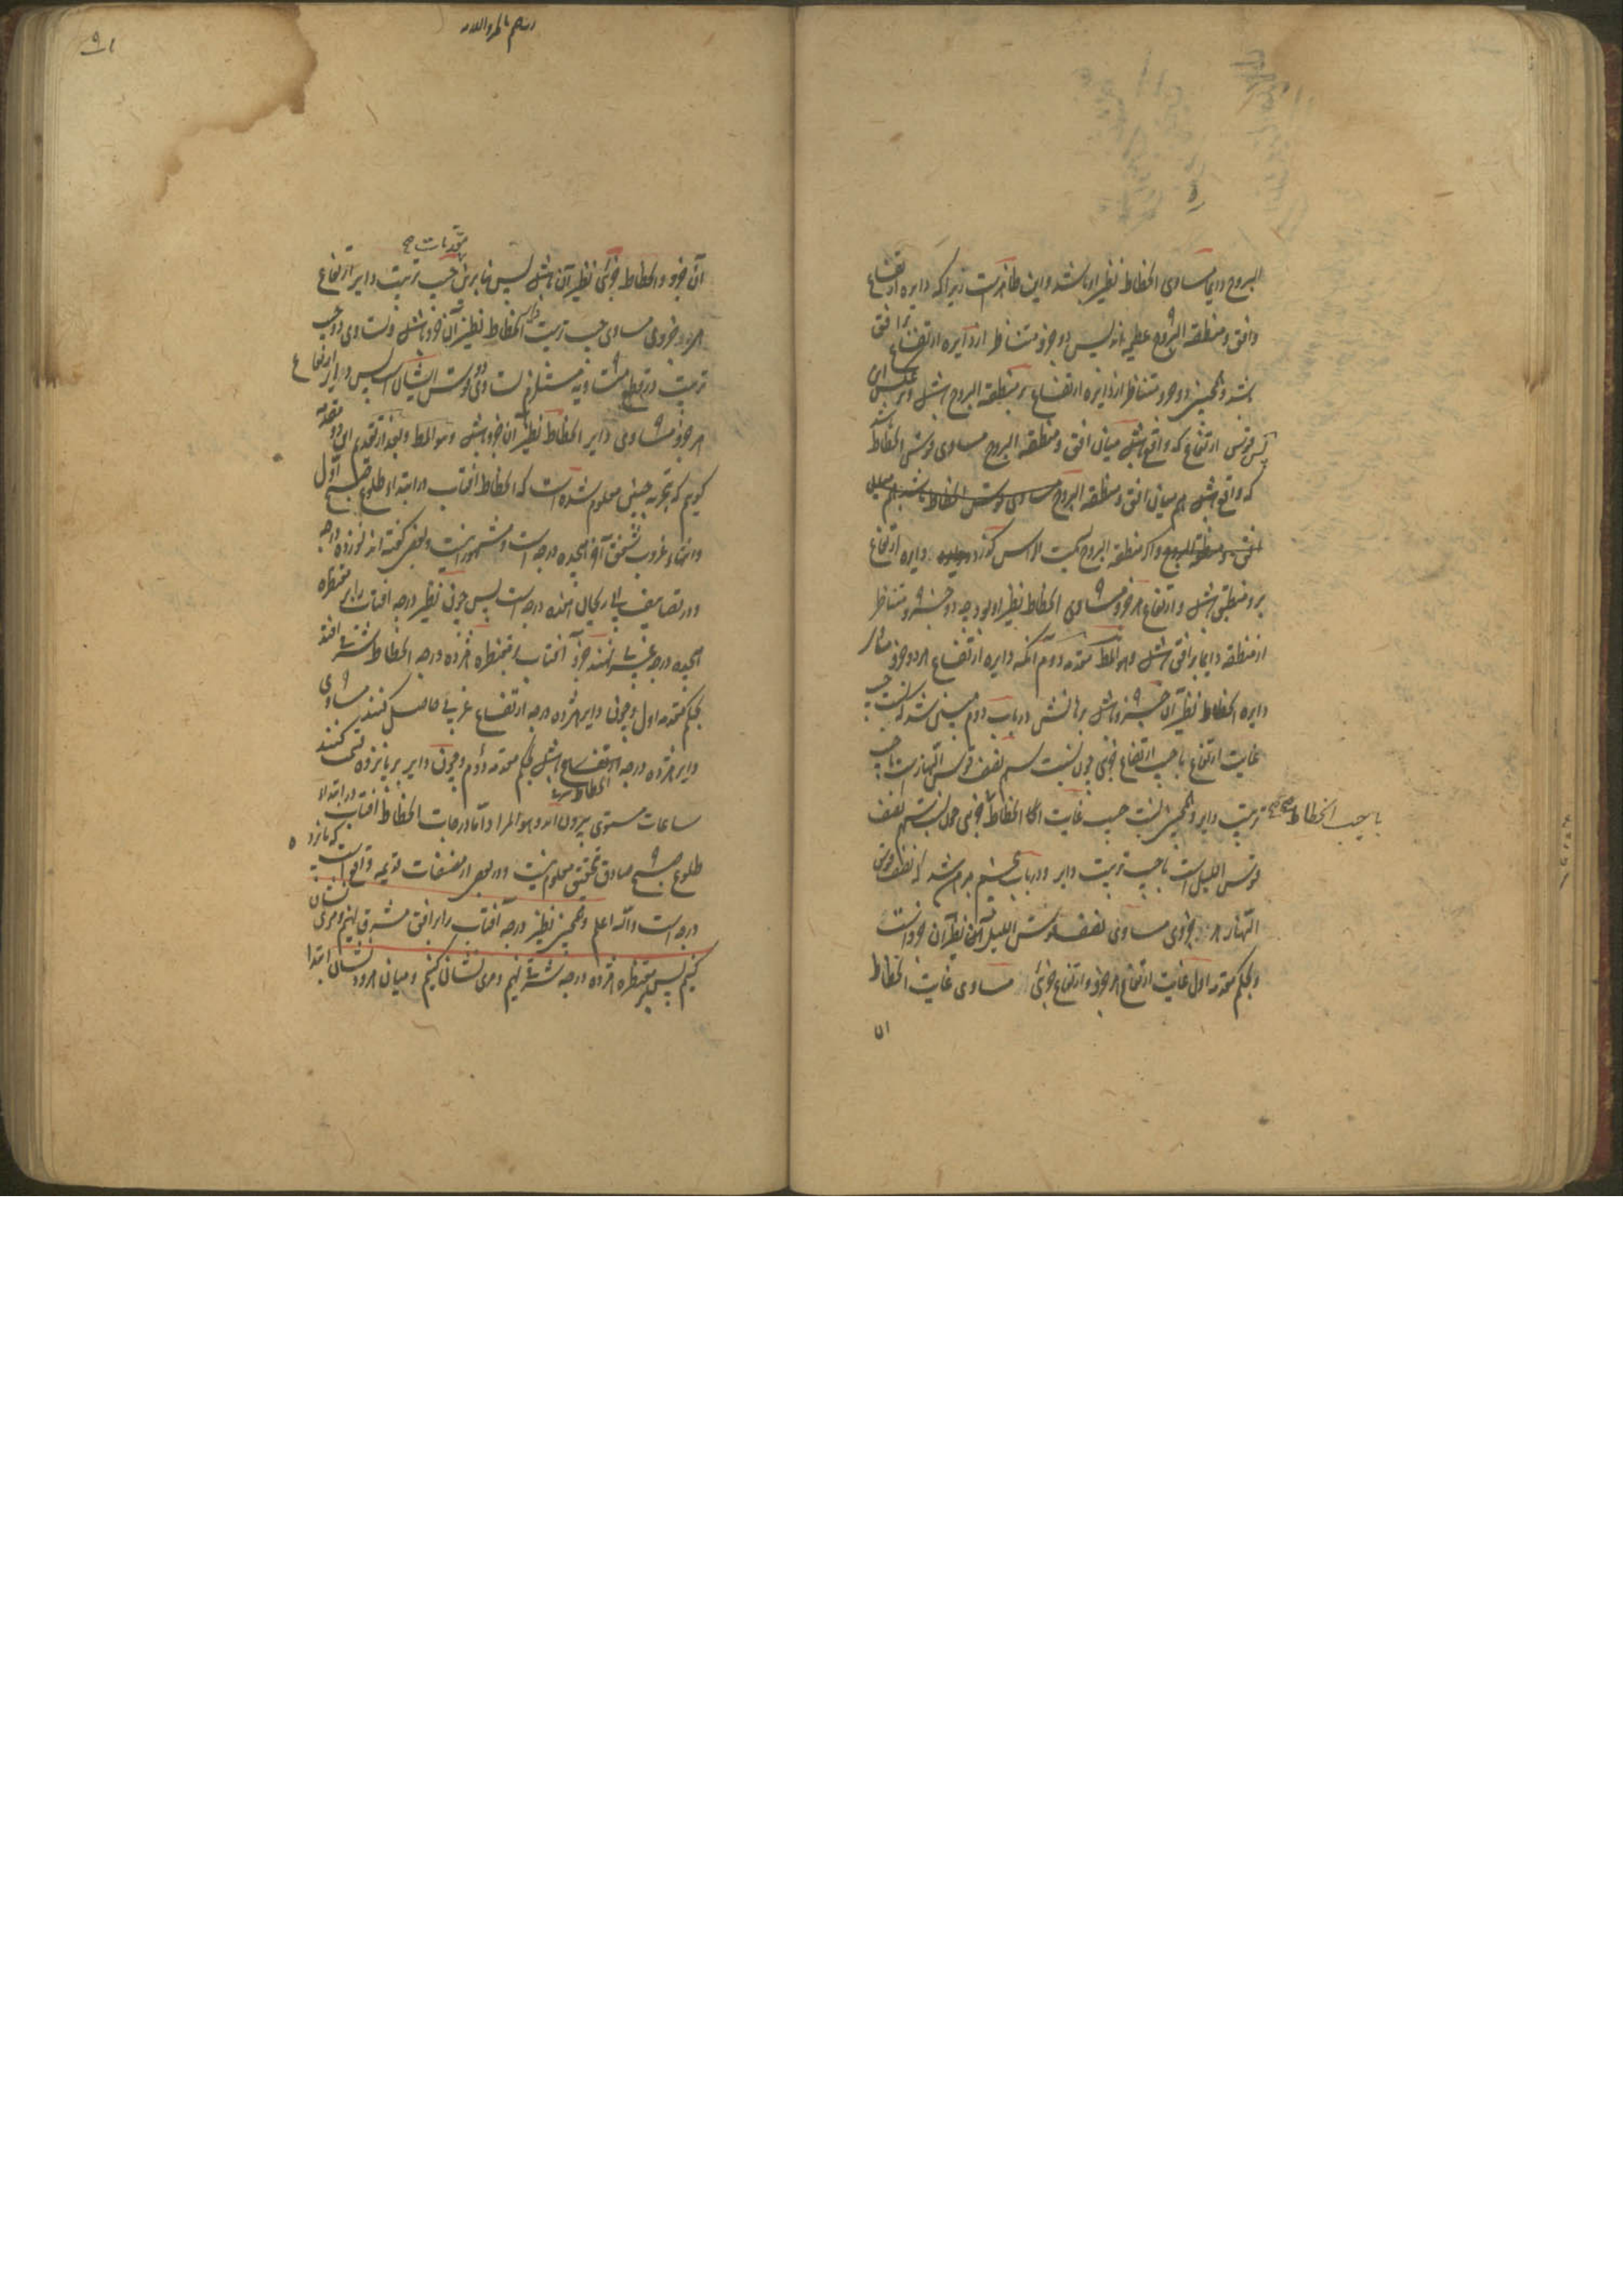 البروج دایما مساوی انحطاط نظیر او باشد و این ظاهرست زیرا که دایره ارتفاع
و افق و منطقة البروج عظیمه اند پس دو جزو متناظر از دایره ارتفاع بر افق
باشد و همچنین دو جزو متناظر از دایره ارتفاع بر منطقة البروج باشد و برعکس
پس قوس ارتفاع که واقع باشد میان افق و منطقة البروج مساوی قوس انحطاط باشد
که واقع باشد هم میان افق و منطقة البروج
و اگر منطقة البروج بسمت الراس گذرد دایره ارتفاع
برو منطبق باشد و ارتفاع هر جزو مساوی انحطاط نظیر او بود چه دو جزو متناظر
از منطقه دایما بر افق باشد و هو المط مقدمه دوم آنکه دایره ارتفاع هر دو جزو
دایره انحطاط نظیر آن جزو باشد برهانش در باب دوم مبین شد که نسبت جیب
غایت ارتفاع با جیب ارتفاع جزوی چون نسبت سهم نصف قوس النهارست با جیب
ترتیب دایر و همچنین نسبت جیب غایت انحطاط جزوی چون نسبت سهم نصف
با جیب انحطاط صح
قوس اللیل است با جیب ترتیب دایر و در باب ششم مبرهن شد که نصف قوس
النهار هر جزوی مساوی نصف قوس اللیل نظیر آن جزو است
و بحکم مقدمه اول غایت ارتفاع هر جزو و ارتفاع جزئی مساوی غایت انحطاط
ان
٩١
آن جزو و انحطاط جزئی نظیر آن باشد پس بنابرین جیب ترتیب دایر ارتفاع
هر جزوی مساوی جیب ترتیب دایر انحطاط نظیر آن جزو باشد و تساوی دو جیب
ترتیب در قطع متساویه مستلزم تساوی دو قوس ایشان است پس دایر ارتفاع
هر جزو مساوی دایر انحطاط نظیر آن جزو باشد و هو المط و بعد از تقدیم این دو مقدمه
گوییم که بتجربه چنین معلوم شده است که انحطاط آفتاب در ابتداء طلوع صبح اول
و انتهاء غروب شفق آخر هجده درجه است و مشهور اینست و بعضی گفته اند نوزده درجه
و در تصانیف ابو ریحان هفده درجه است پس چون نظیر درجه آفتاب را بر مقنطره
هجده درجه غربی نهند جزو آفتاب بر مقنطره هژده درجه انحطاط شرقی افتد
بحکم مقدمه اول و چون دایر هژده درجه ارتفاع غربی حاصل کنند مساوی
دایر هژده درجه انحطاط شرقی باشد بحکم مقدمه دوم و چون دایر بر پانزده قسمت کنند
ساعات مستوی بیرون آید و هو المراد و اما درجات انحطاط آفتاب در ابتداء
طلوع صبح صادق بتحقیق معلوم نیست و در بعضی از مصنفات قدیمه واقع است که پانزده
درجه است والله اعلم و همچنین نظیر درجه آفتاب را بر افق مشرق نهیم و مری نشان
کنیم پس بر مقنطره هژده درجه شرقی نهیم و مری نشان کنیم و میان هر دو نشان ابتدا